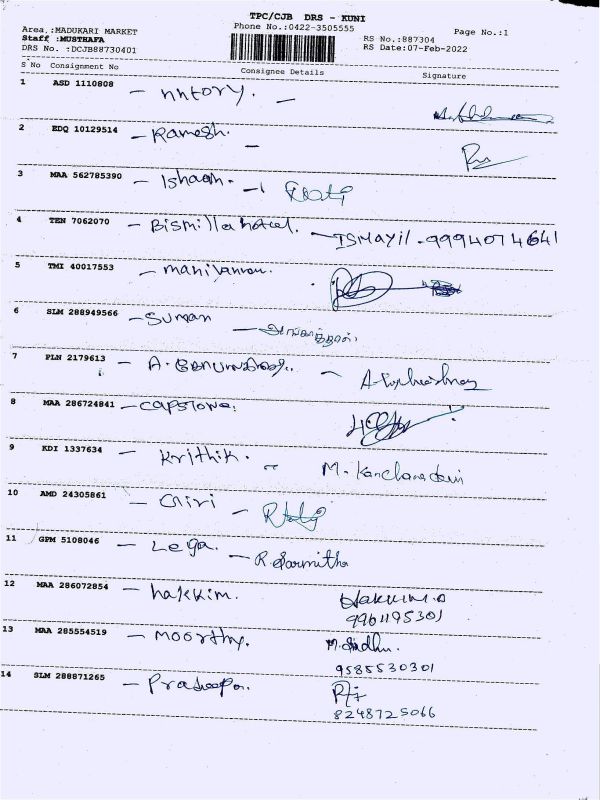 TPC/CJB DRS - KUNI
Area :MADUKARI MARKET Phone No.:0422-3505555 Page No.:1
Staff :MUSTHAFA RS No.:887304
DRS No. :DCJB88730401 RS Date:07-Feb-2022
S No Consignment No Consignee Details Signature
1 ASD 1110808 -
2 EDQ 10129514 - Ramesh. -
3 MAA 562785390 - Ishaan. -
4 TEN 7062070 - Bismilla hotel. - ISMAyil. 9994074641
5 TMI 40017553 - manivannan.
6 SLM 288949566 - Suman -
7 PLN 2179613 - A. -
8 MAA 286724841 - capstone.
9 KDI 1337634 - Krithik. - M. Kanchanadevi
10 AMD 24305861 - Giri -
11 GPM 5108046 - Lega. - R. Sarmitha
12 MAA 286072854 - hakkim. Hakkim.
9961195301
13 MAA 285554519 - moorthy. M. Sindhu.
9585530301
14 SLM 288871265 - Pradeepa.
8248725066